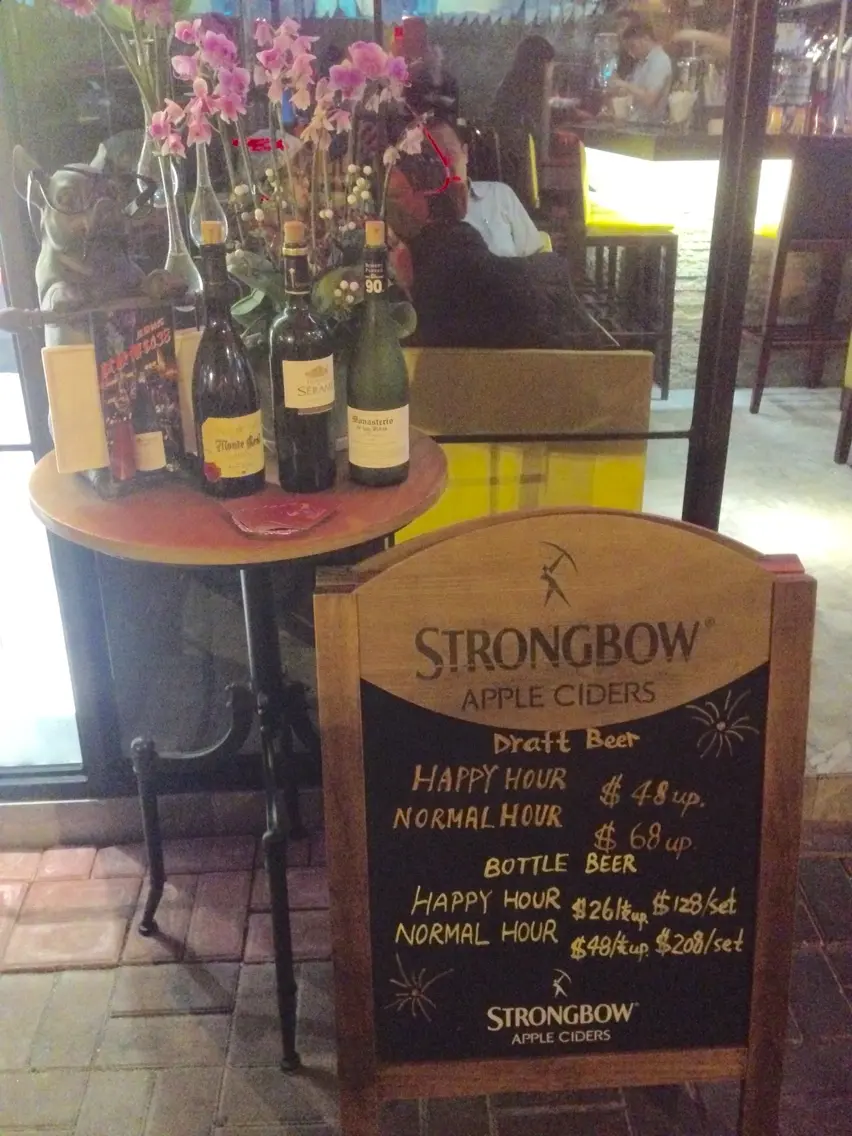 90
SERAME
Monte Real
Monasterio
de las Viñas
STRONGBOW®
APPLE CIDERS
Draft Beer
HAPPY HOUR $48 up.
NORMAL HOUR $68 up
BOTTLE BEER
HAPPY HOUR $26/支up $128/set
NORMAL HOUR $48/支up. $208/set
STRONGBOW®
APPLE CIDERS